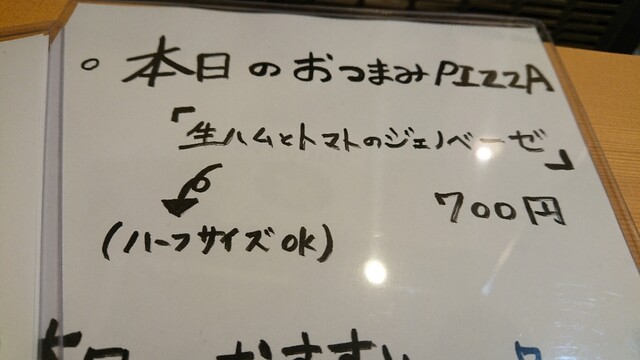 。本日のおつまみPIZZA
「生ハムとトマトのジェノベーゼ」
700円
(ハーフサイズOK)